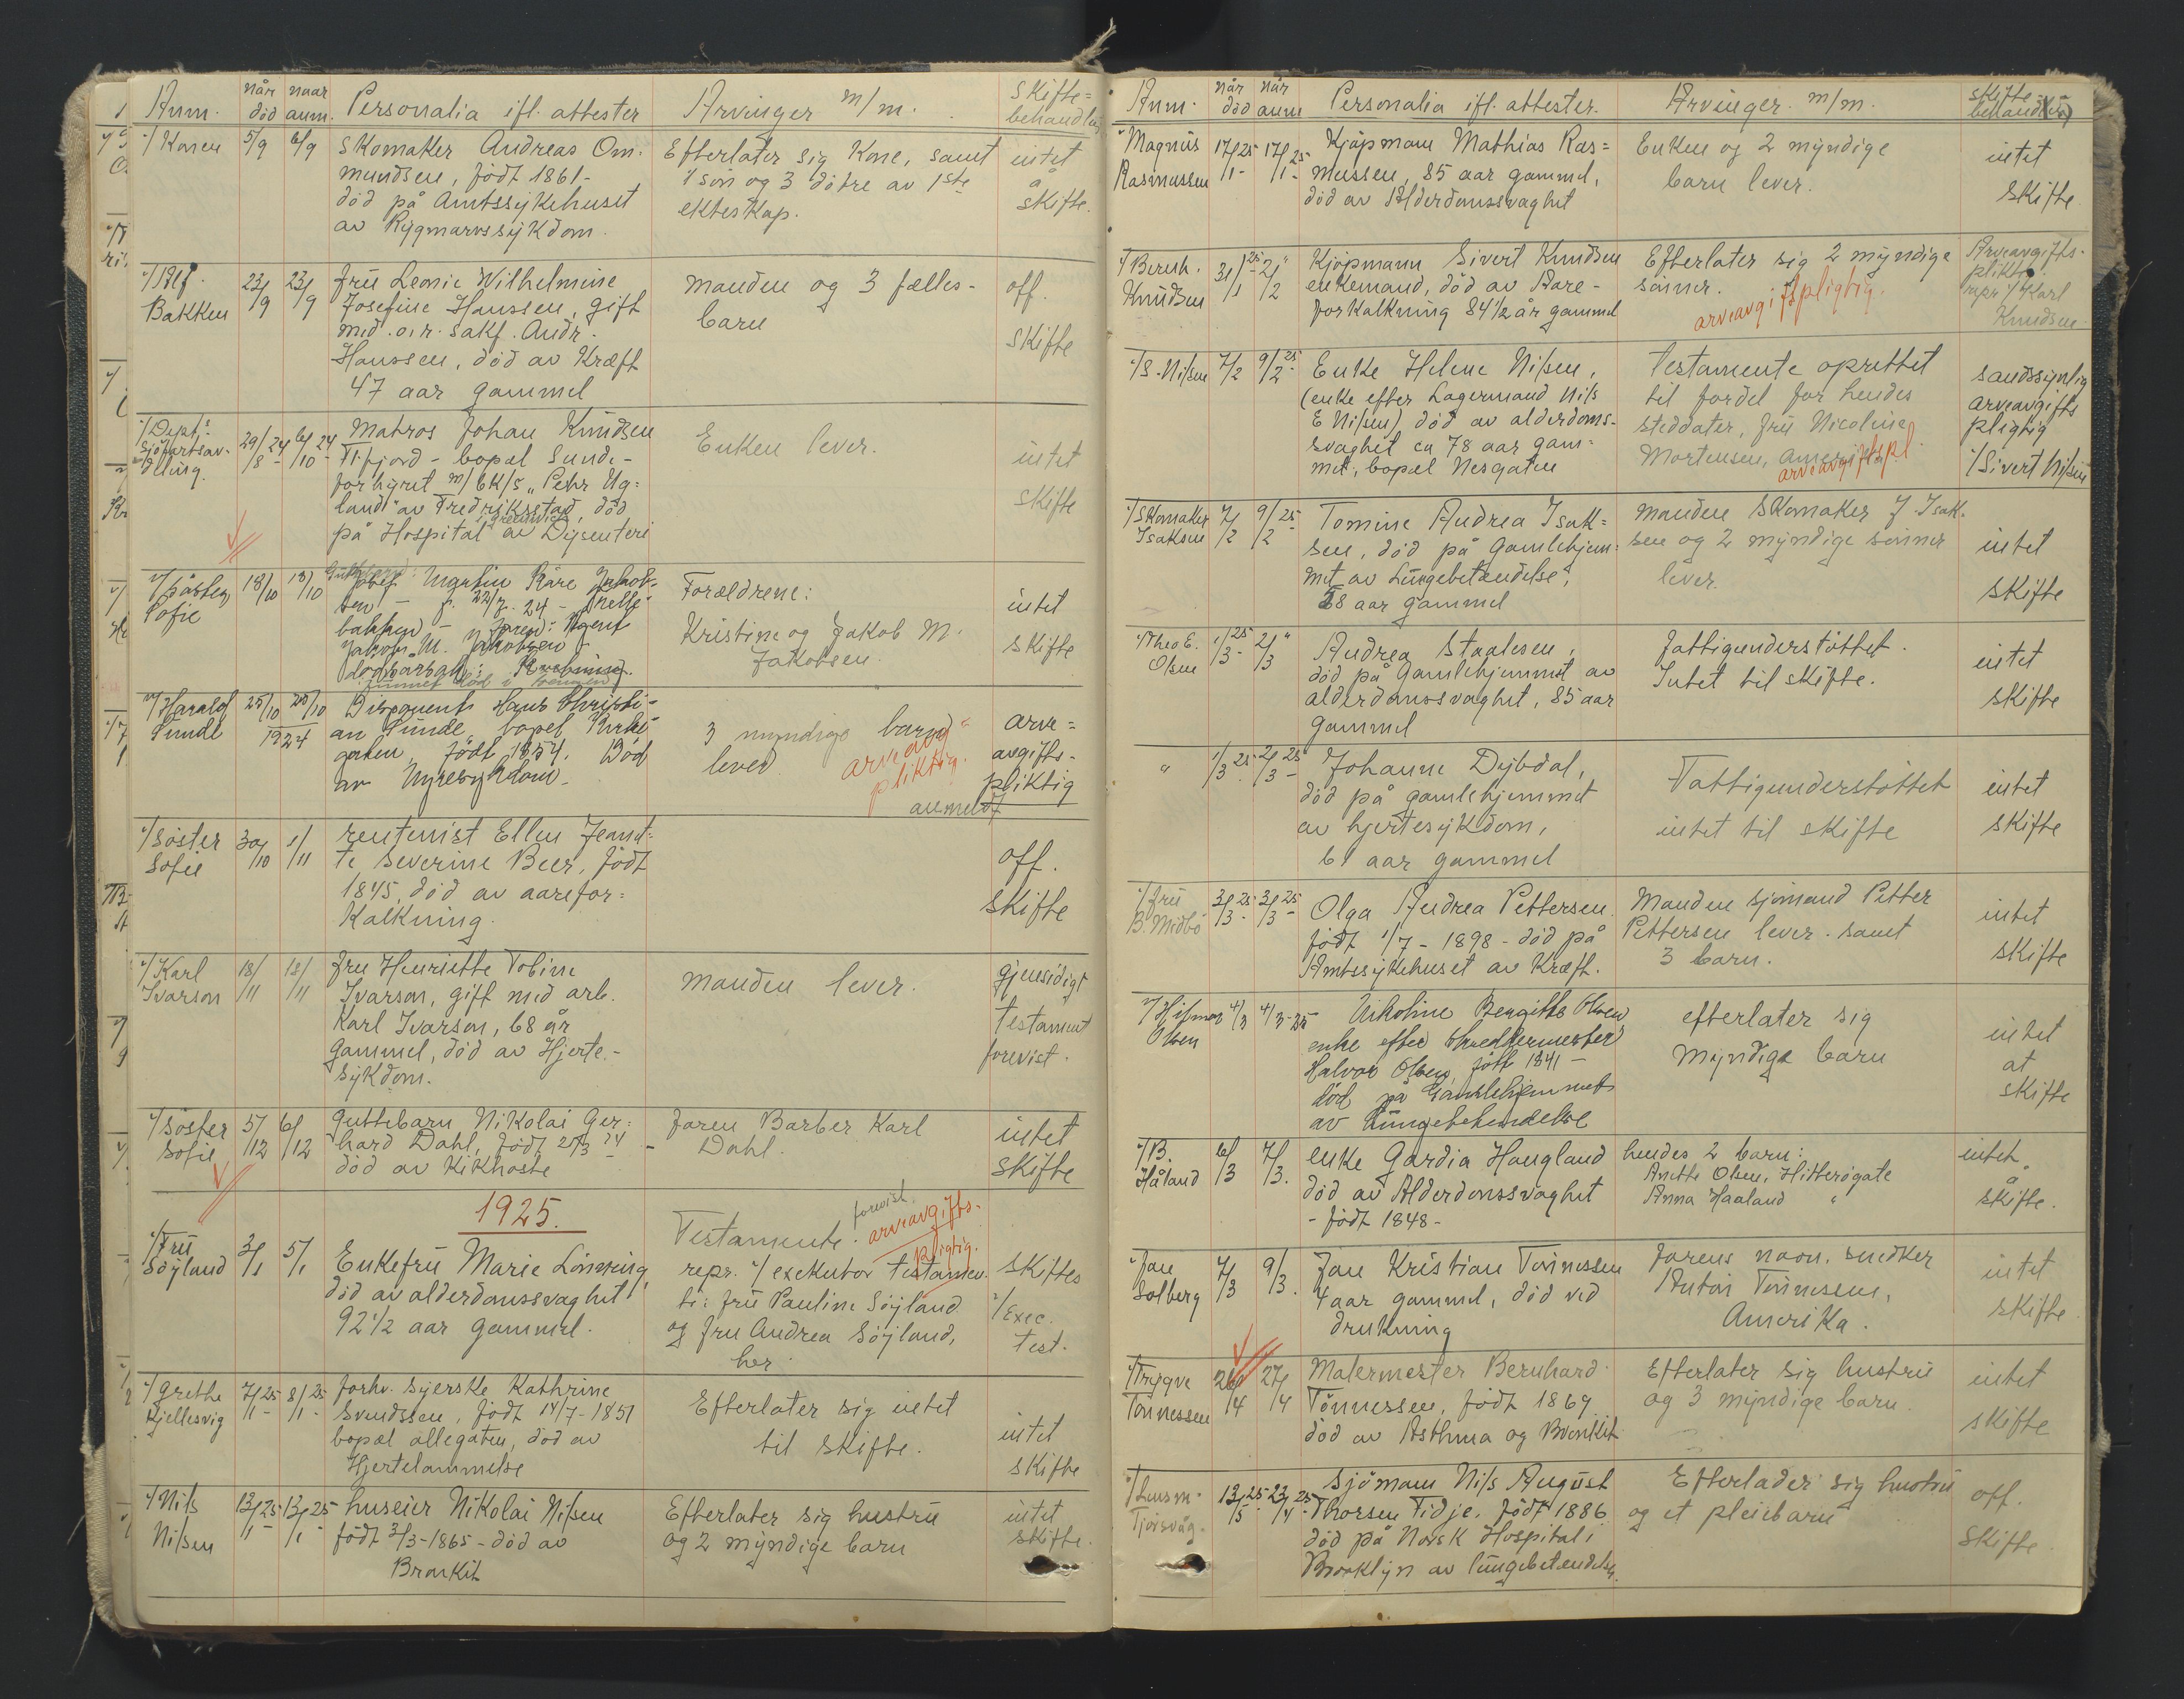 Anm. når død naar anm. Personalia ifl. attester Arvinger m/m. Skifte= behandling
v/ Konen 5/9 6/9 Skomaker Andreas Om-
mundsen, født 1861-
død på Amtssykehuset
av Rygmarvssykdom.
Efterlater sig Kone, samt
1 søn og 3 døtre av 1ste
ekteskap.
intet
å
skifte.
v/ Alf
Bakken
23/9 23/9
Fru Leonie Wilhelmine
Josefine Hanssen, gift
med o.r. sakf. Andr.
Hanssen, død av Kræft
47 aar gammel
manden og 3 fælles-
barn
off.
skifte
v/ Dept.s
sjøfartsav-
deling.
29/8 24 6/10 24
Matros Johan Knudsen
Fl.fjord - bopæl Sunde-
forhyret m/ 6K/S "Pehr Ug=
land" av Fredriksstad, død
på Hospital i Greenwich av Dysenteri
Enken lever.
intet
skifte
v/ søster
Sofie
18/10 18/10
Guttebarn:
Martin Kåre Jakob-
sen - f. 22/7. 24 -
bakken - Faren: Agent
Jakob M. Jakobsen -
dødsårsak:
Forældrene:
Kristine og Jakob M.
Jakobsen.
intet
skifte
v/ Harald
Sunde
25/10 28/10
1924
Disponent Hans Christi-
an Sunde, bopæl Kirke-
gaten, født 1854. Død
av Nyresykdom-
3 myndige barn
lever
arveavg.
pliktig.
arve=
avgifts-
pliktig
anmeldt
v/ søster
Sofie
30/10 1/11
rentenist Ellen Jeanet=
te Severine Beer, født
1845, død av aarefor=
kalkning.
off.
skifte
v/ Karl
Ivarson
18/11 18/11
Fru Henriette Tobine
Ivarson, gift med arb.
Karl Ivarson, 68 år
gammel, død av Hjerte-
sykdom.
manden lever.
gjensidigt
testament
forevist.
v/ søster
Sofie
5/12 6/12
Guttebarn Nikolai Ger=
hard Dahl, født 25/3 24 -
død av Kikhoste
Faren Barber Karl
Dahl.
intet
skifte
1925.
v/ Fru
Søyland
3/1 5/1
Enkefru Marie Lønning,
død av alderdomssvaghet
92 1/2 aar gammel.
Testamente. forevist.
arveavgifts-
pligtig.
repr. v/ exekutor testamen-
te: fru Pauline Søyland
og fru Andrea Søyland,
her.
Skiftes
v/ Exec.
test.
v/ Grethe
Kjellesvig
7/1 25 8/1 25
Forhv. syerske Kathrine
Svendssen, født 14/7-1851
bopæl allegaten, død av
Hjertelammelse
Efterlater sig intet
til skifte.
intet
skifte
v/ Nils
Nilsen
13/1 25 13/1 25
huseier Nikolai Nilsen
født 3/3-1865 - død av
Bronkit
Efterlater sig hustru
og 2 myndige barn
intet
skifte.
Anm. når død når anm Personalia ifl. attester. Arvinger m/m. skifte= behandling
v/ Magnus
Rasmussen
17/1 25 17/1 25
Kjøpmann Mathias Ras=
mussen, 85 aar gammel,
død av Alderdomssvaghet
Enken og 2 myndige
barn lever.
intet
skifte
v/ Bernh.
Knudsen
31/1 25 2/2 "
Kjøpmann Sivert Knudsen
enkemand, død av Aare-
forkalkning 84 1/2 år gammel
Efterlater sig 2 myndige
sønner.
arveavgiftspligtig.
Arveavgifts-
plikt.
repr v/ Karl
Knudsen.
v/ S. Nilsen 7/2 9/2 25
Enke Helene Nilsen,
(enke efter Lagermand Nils
E Nilsen), død av alderdoms-
svaghet ca 78 aar gam=
mel, bopæl Nesgaten
Testamente oprettet
til fordel for hendes
steddater, fru Nicoline
Mortensen, Amerika
arveavgiftspl.
sandssynlig
arveavgifts
pligtig
v/ Sivert Nilsen
v/ Skomaker
Isaksen
7/2 9/2 25
Tomine Andrea Isak=
sen, død på Gamlehjem=
met av Lungebetændelse,
58 aar gammel
manden Skomaker J. Isak-
sen og 2 myndige sønner
lever.
intet
skifte
v/ Theo E.
Olsen
1/3 25 2/3 "
Andrea Staalesen,
død på Gamlehjemmet av
alderdomssvaghet, 85 aar
gammel
Fattigunderstøttet.
Intet til skifte.
intet
skifte
" 1/3 25 2/3 25
Johanne Dybdal,
død på gamlehjemmet
av hjertesykdom,
61 aar gammel
Fattigunderstøttet
intet til skifte
intet
skifte
v/ Fru
B. Midbø
3/3 25 3/3 25
Olga Andrea Pettersen
født 1/7 - 1898 - død på
Amtssykehuset av Kræft.
Manden sjømand Petter
Pettersen lever. samt
3 barn.
intet
skifte
v/ Hjilmar
Olsen
4/3 4/3-25
Nikoline Bergitte Olsen
enke efter Skreddermester
Halvor Olsen, født 1841 -
død på Gamlehjemmet
av Lungebetændelse
efterlater sig
myndige barn
intet
at
skifte
v/ B.
Håland
6/3 7/3.
enke Gardia Haugland
død av Alderdomssvaghet
- født 1848 -
hendes 2 barn:
Anette Olsen, Hitterøgate
Anna Haaland "
intet
å
skifte.
v/ Jan
Solberg
7/3 9/3.
Jan Kristian Tønnessen
4 aar gammel, død ved
drukning
Farens navn. snedker
Anton Tønnessen,
Amerika.
intet
skifte
v/ Trygve
Tønnessen
26/4 27/4
Malermester Bernhard
Tønnessen, født 1869
død av Asthma og Bronkit
Efterlater sig hustru
og 3 myndige barn.
intet
skifte
v/ Lensm.
Tjorsvåg.
13/5 25 23/4 25
Sjømann Nils August
Thorsen Tidje. født 1886
død på Norsk Hospital i
Brooklyn av lungebetændelse.
Efterlader sig hustru
og et pleiebarn
off.
skifte.